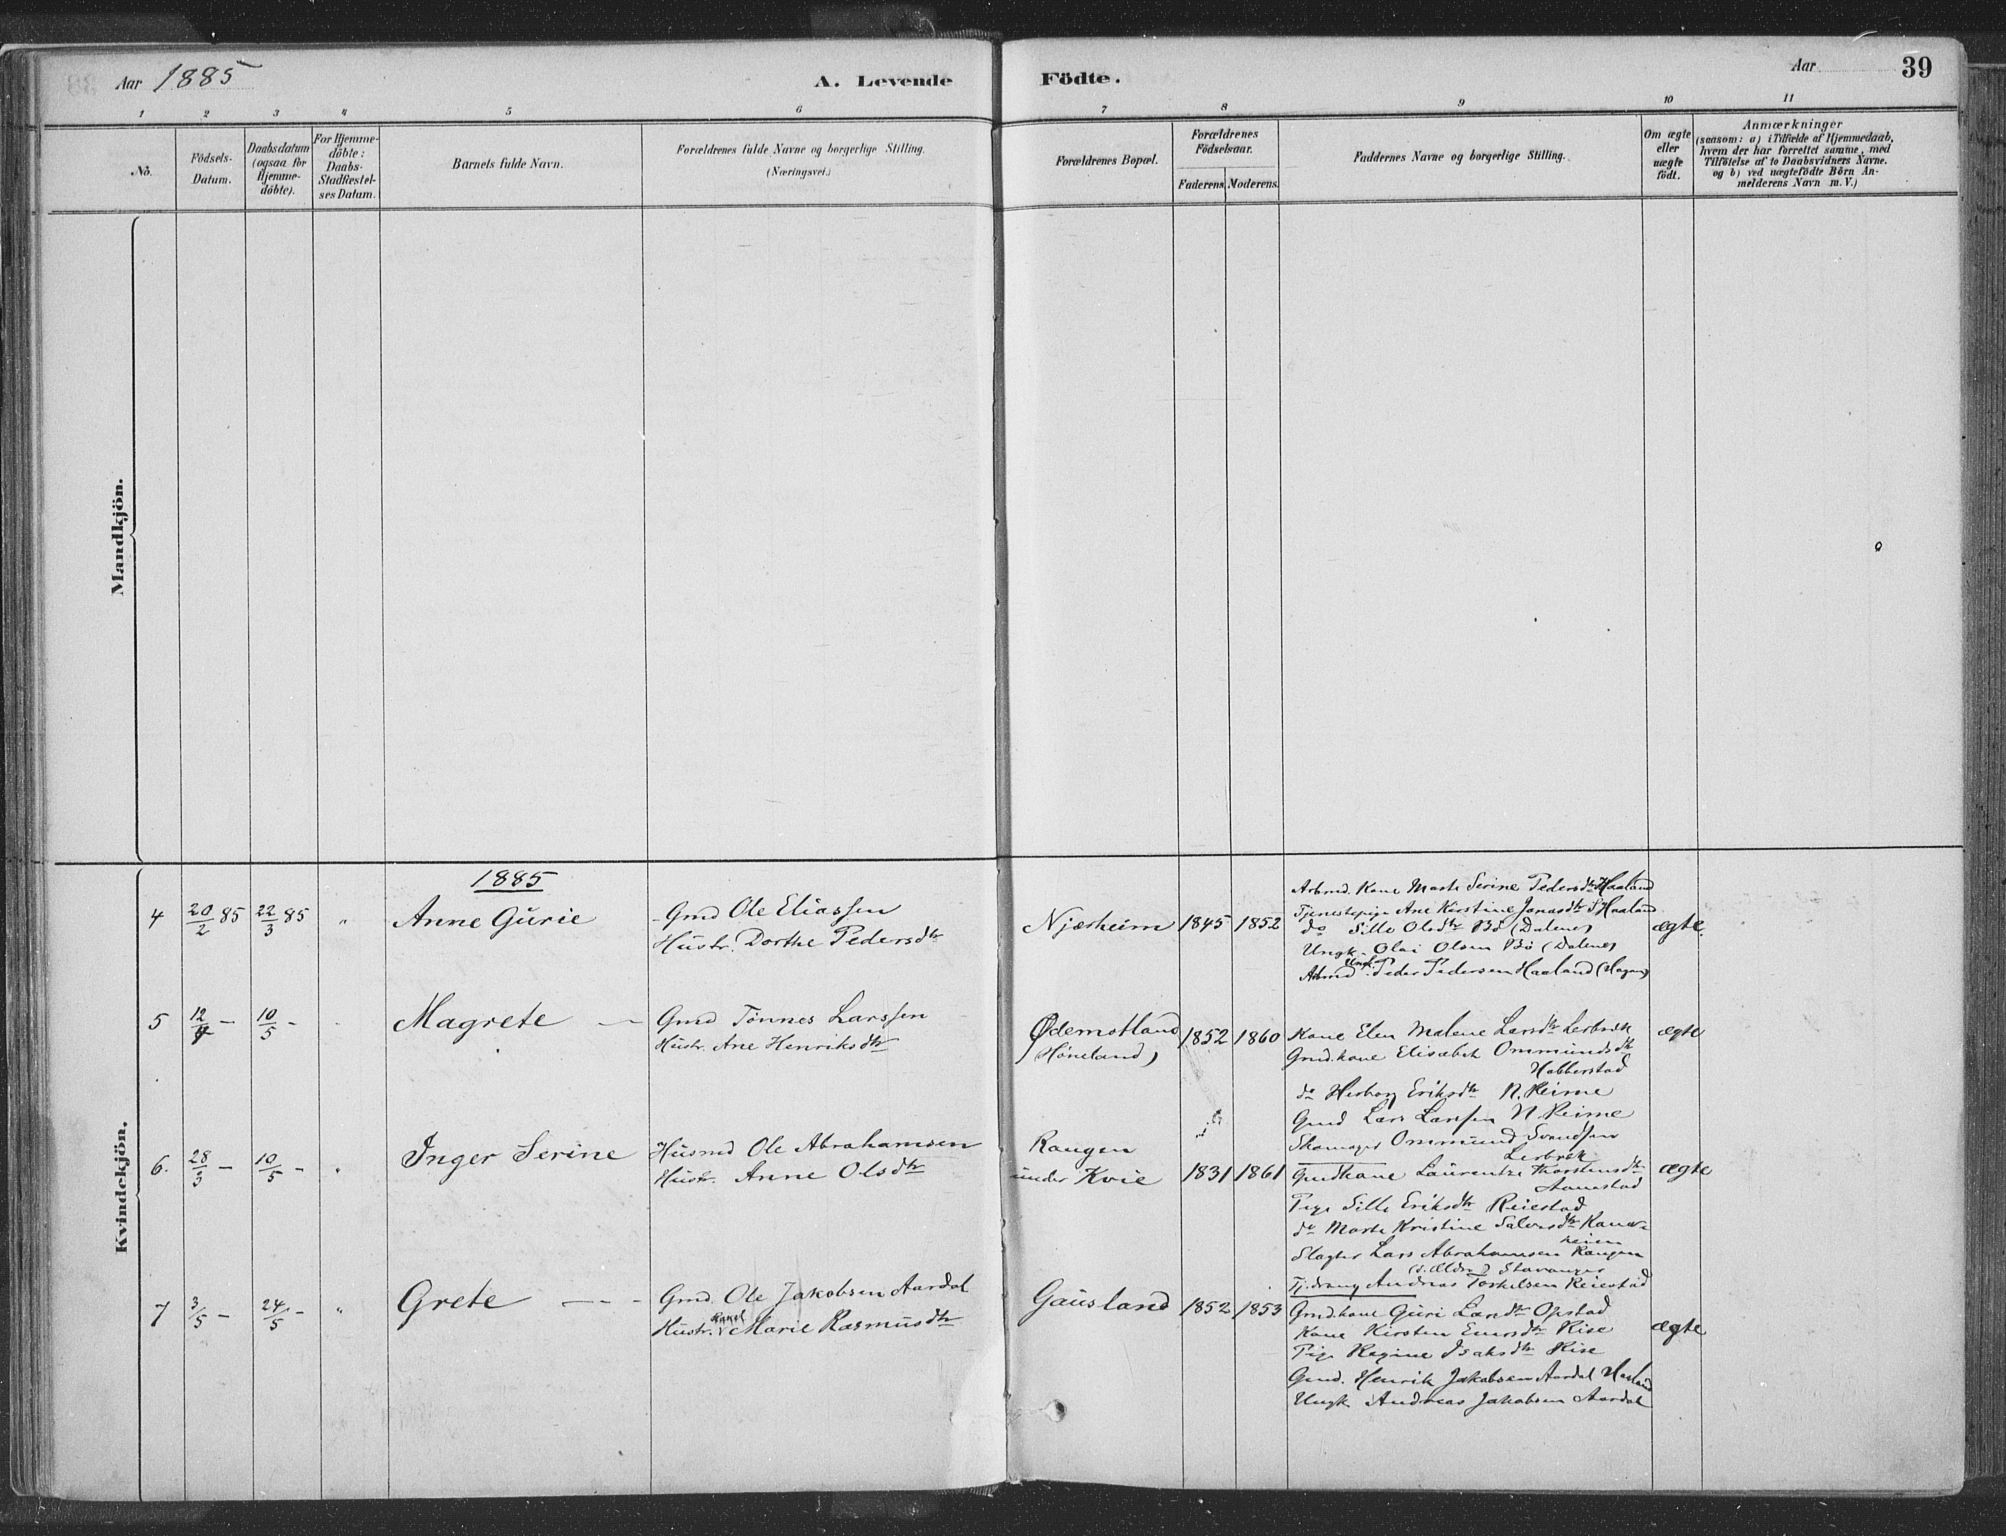 Aar 1885
A. Levende Födte.
Aar 39
1 2 3 4 5 6 7 8 9 10 11
No.
Födsels-Datum.
Daabsdatum (ogsaa for Hjemme-döbte).
For Hjemme-döbte: Daabs-Stadfæstel-ses Datum.
Barnets fulde Navn.
Forældrenes fulde Navne og borgerlige Stilling.
(Næringsvei.)
Forældrenes Bopæl.
Forældrenes Födselsaar.
Faderens. Moderens.
Faddernes Navne og borgerlige Stilling.
Om ægte eller uægte födt.
Anmærkninger
(saasom: a) i Tilfælde af Hjemmedaab,
hvem der har forrettet samme, med
Tilföielse af to Daabsvidners Navne.
og b) ved uægtefödte Börn An-
melderens Navn m. V.)
Mandkjön.
Kvindekjön.
1885
4 20/2 85 22/3 85 " Anne Gurie
Gmd Ole Eliassen
Hustr. Dorthe Pedersdtr
Njærheim 1845 1852
Arbmd. Kone Marte Serine Pedersdtr Haaland
Tjenestepige Ane Kirstine Jonasdtr S Haaland
do Sille Olsdtr Bö (Dalene)
Ungk. Olai Olsen Bö (Dalene)
Arbmd Ungk. Peder Pedersen Haaland (Hagen)
ægte.
5 12/4 - 10/5 - Magrete
Gmd Tönnes Larssen
Hustr. Ane Henriksdtr
Ødemotland
(Höneland)
1852 1860
Kone Elen Malene Larsdtr Lerbrek
Gmd.kone Elisabet Ommundsdtr
Habberstad
do Herborg Eriksdtr N. Reime
Gmd Lars Larssen N. Reime
Skomager Ommund Svendsen
Lerbrek
ægte
6. 28/3 - 10/5 - " Inger Serine
Husmd Ole Abrahamsen
Hustr. Anne Olsdtr
Rangen
under Kvie
1831 1861
Gmdkone Laurentze Thorstensdtr
Aanestad
Pige Sille Eriksdtr Reiestad
do Marte Kristine Salvesdtr
Slagter Lars Abrahamsen Rangen
Stavanger
Andreas Torkelsen Reiestad
ægte
7 3/5 - 24/5 - " Grete
Gmd. Ole Jakobsen Aardal
Hustr. Marie Rasmusdtr
Gausland 1852 1853
Gmdkone Guri Larsdtr Opstad
Kone Kirsten Rise
Pige Regine Isaksdtr Rise
Gmd. Henrik Jakobsen Aardal Haaland
Ungk Andreas Jakobsen Aardal
ægte